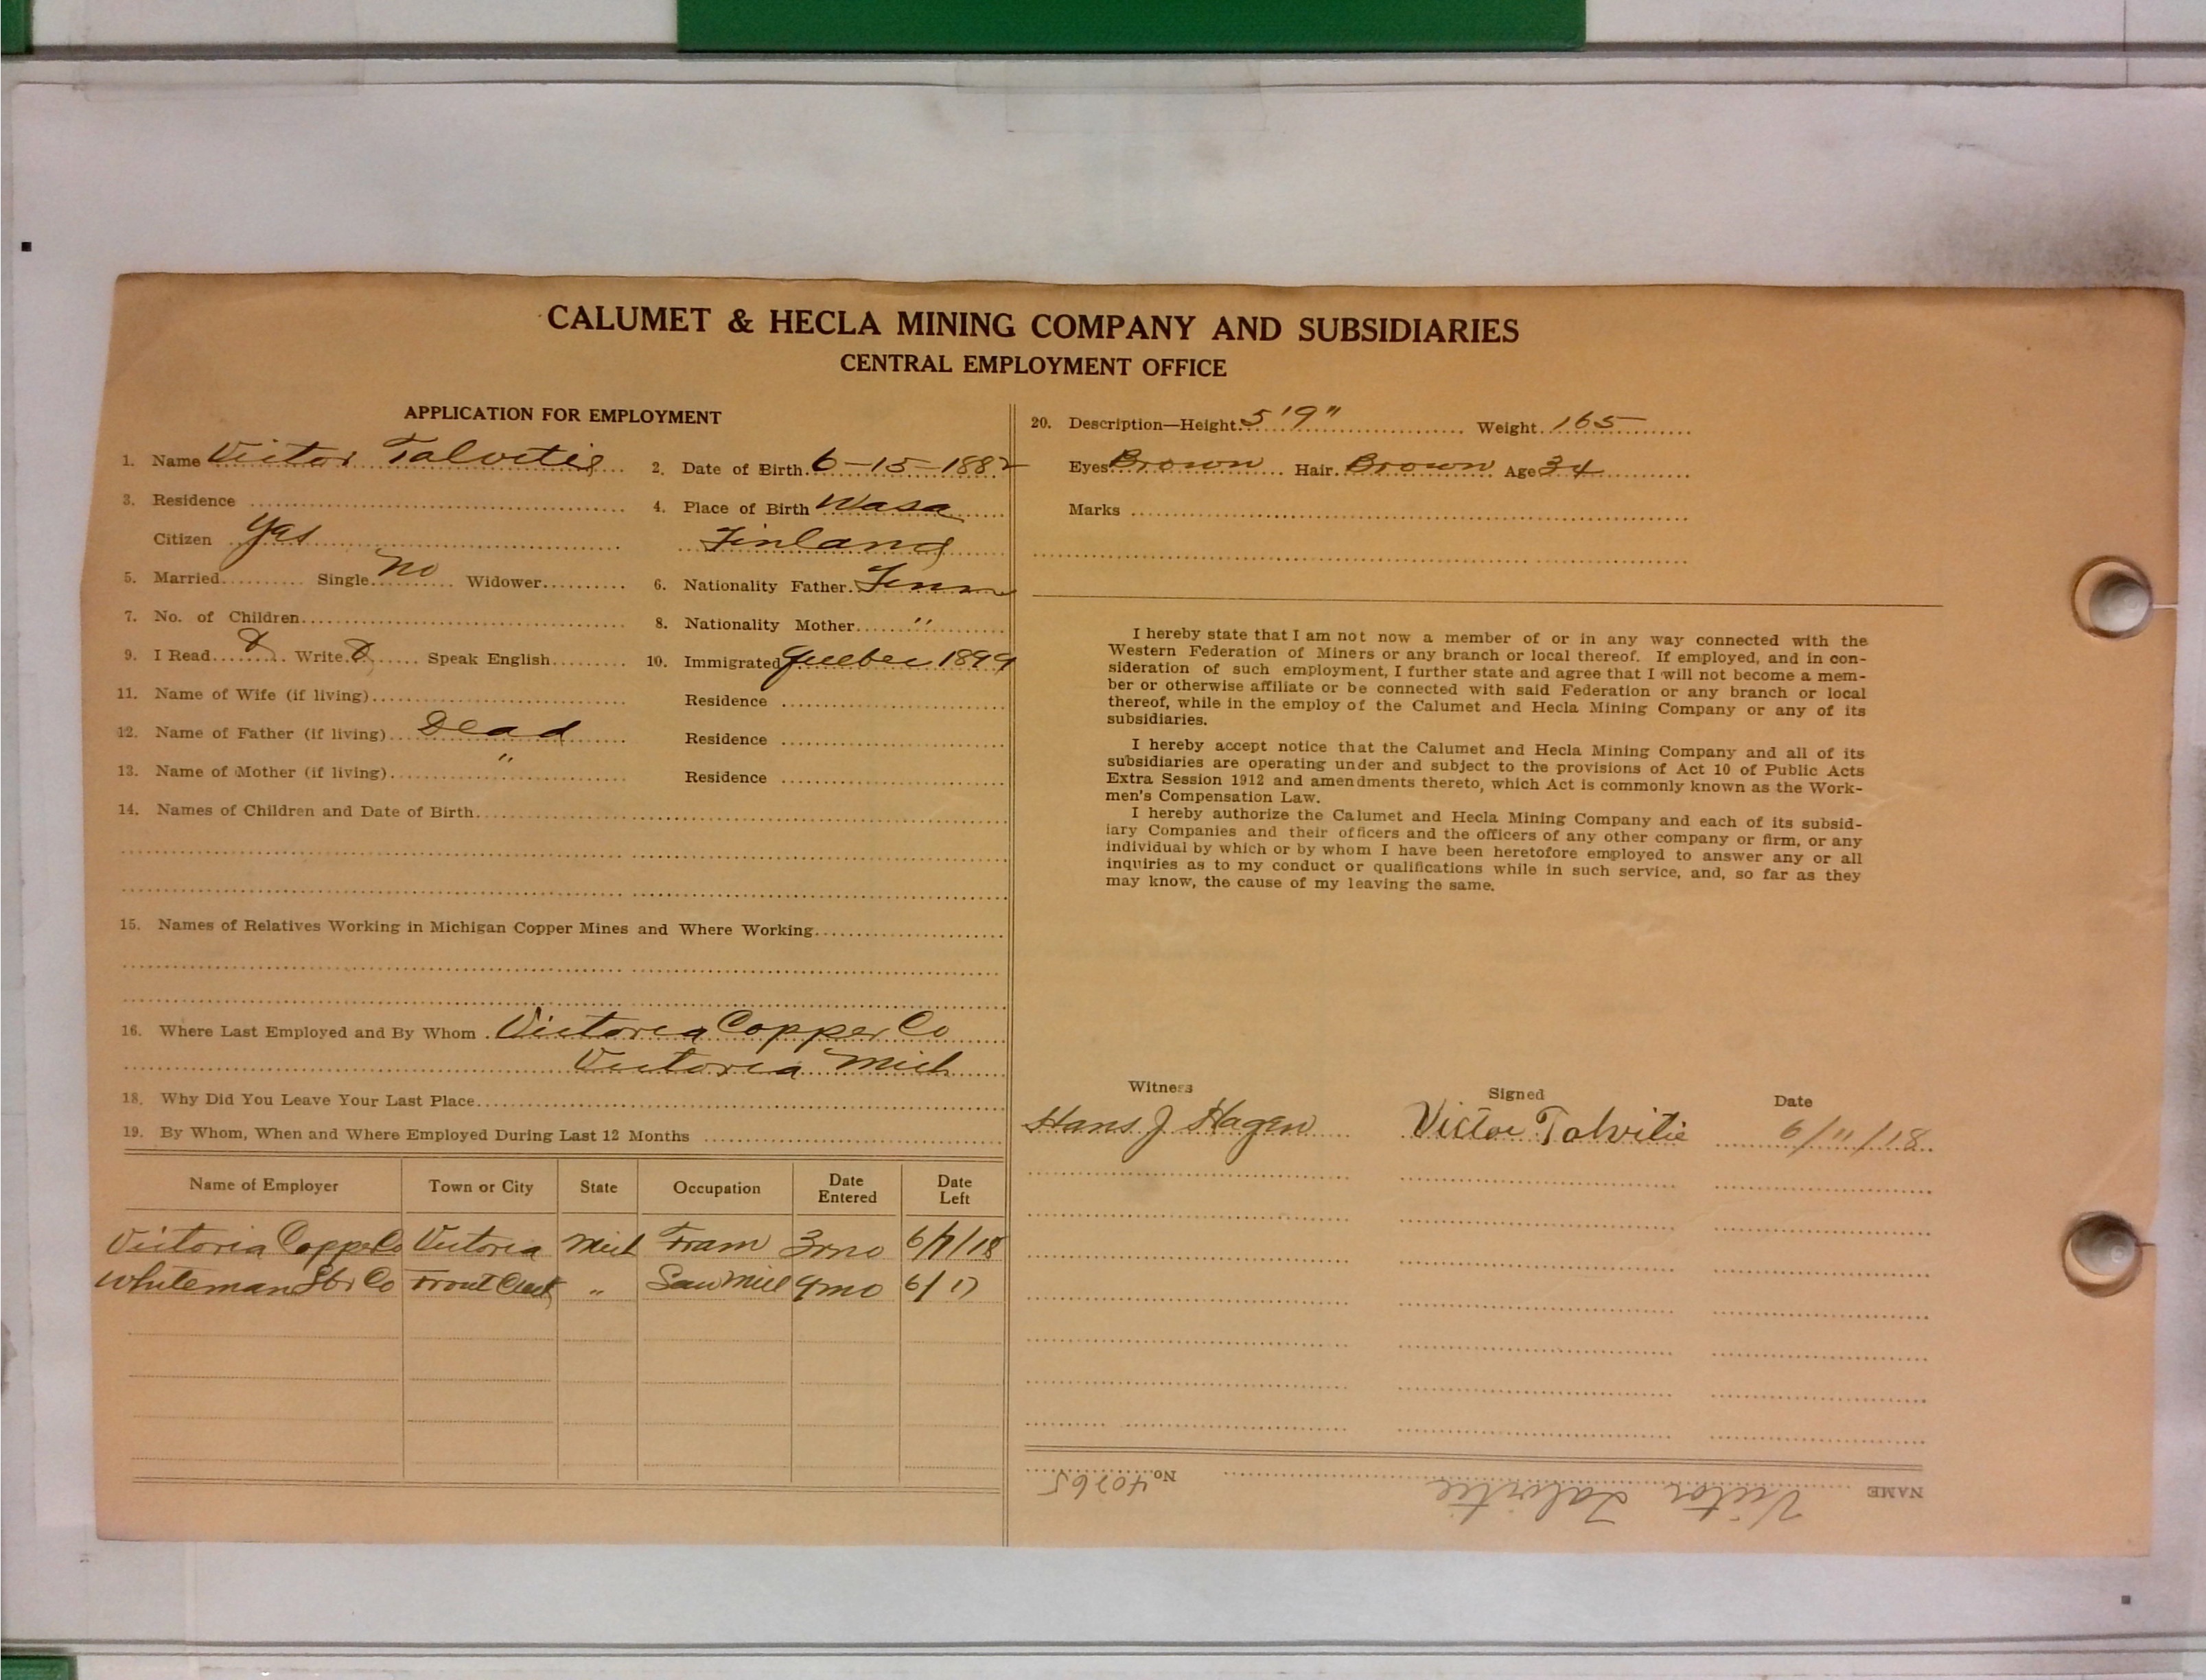 CALUMET & HECLA MINING COMPANY AND SUBSIDIARIES
CENTRAL EMPLOYMENT OFFICE
APPLICATION FOR EMPLOYMENT
1. Name Victor Talvitie 2. Date of Birth 6-15-1882
3. Residence 4. Place of Birth Wasa
Citizen Yes Finland
5. Married Single No Widower 6. Nationality Father Finn
7. No. of Children 8. Nationality Mother "
9. I Read Write Speak English 10. Immigrated Quebec 1899
11. Name of Wife (if living) Residence
12. Name of Father (if living) Dead Residence
13. Name of Mother (if living) " Residence
14. Names of Children and Date of Birth
15. Names of Relatives Working in Michigan Copper Mines and Where Working
16. Where Last Employed and By Whom Victoria Copper Co
Victoria Mich
18. Why Did You Leave Your Last Place
19. By Whom, When and Where Employed During Last 12 Months
Name of Employer Town or City State Occupation Date Entered Date Left
Victoria Copper Co Victoria Mich Tram 3 mo 6/7/18
Whiteman Lbr Co Trout Creek " Saw Mill 9 mo 6/17
20. Description—Height 5'9" Weight 165
Eyes Brown Hair Brown Age 34
Marks
I hereby state that I am not now a member of or in any way connected with the
Western Federation of Miners or any branch or local thereof. If employed, and in con-
sideration of such employment, I further state and agree that I will not become a mem-
ber or otherwise affiliate or be connected with said Federation or any branch or local
thereof, while in the employ of the Calumet and Hecla Mining Company or any of its
subsidiaries.
I hereby accept notice that the Calumet and Hecla Mining Company and all of its
subsidiaries are operating under and subject to the provisions of Act 10 of Public Acts
Extra Session 1912 and amendments thereto, which Act is commonly known as the Work-
men's Compensation Law.
I hereby authorize the Calumet and Hecla Mining Company and each of its subsid-
iary Companies and their officers and the officers of any other company or firm, or any
individual by which or by whom I have been heretofore employed to answer any or all
inquiries as to my conduct or qualifications while in such service, and, so far as they
may know, the cause of my leaving the same.
Witness Signed Date
Hans J Hagen Victor Talvitie 6/11/18
NAME Victor Talvitie No. 40765